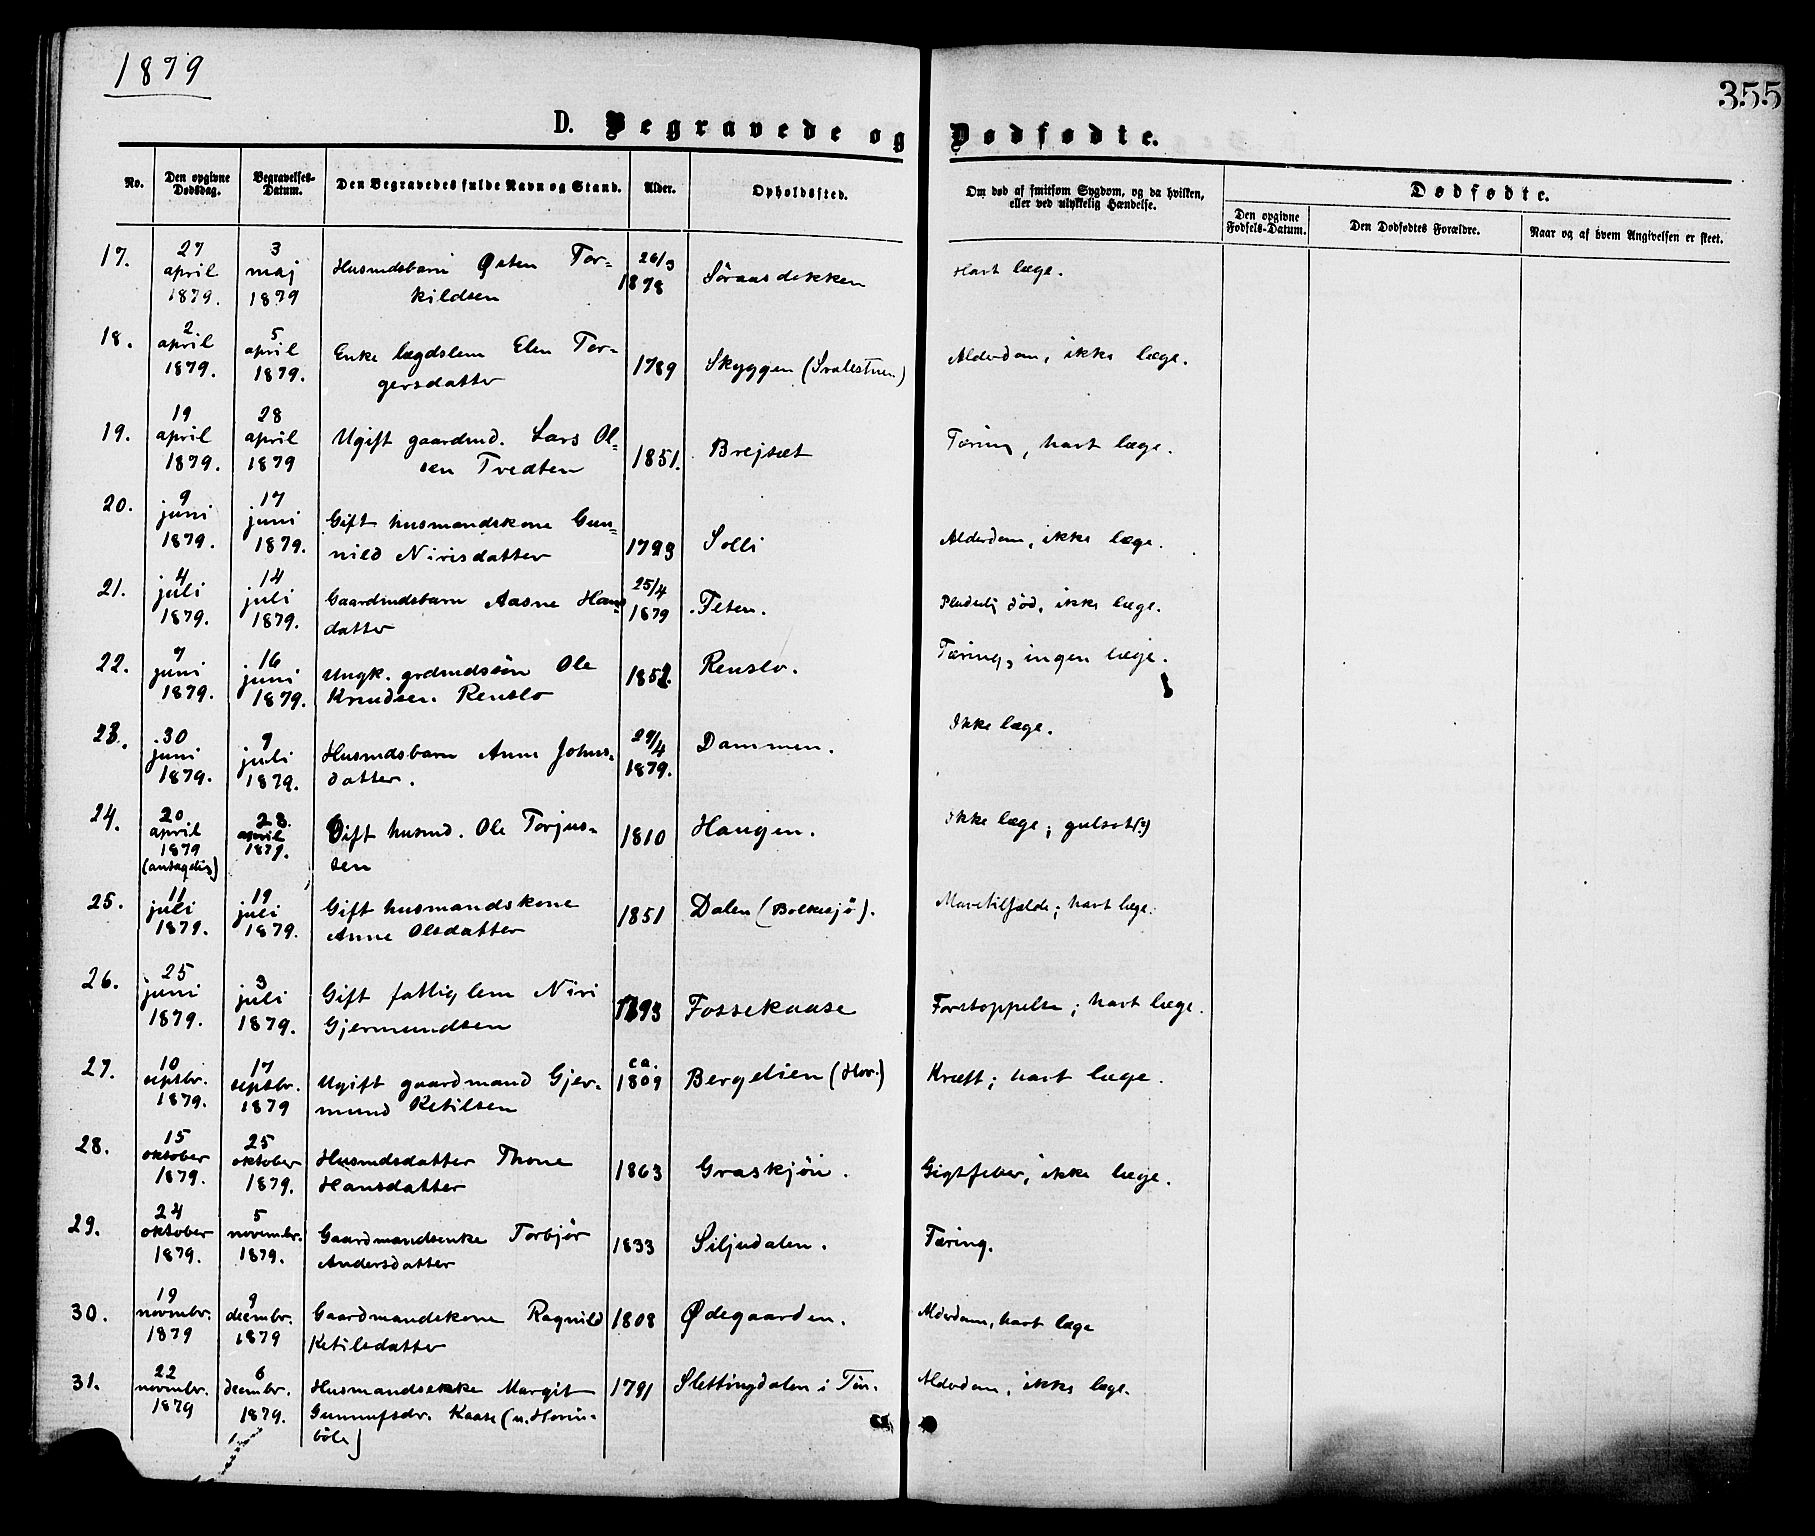 1879
355
D. Begravede og Dødfødte.
No.
Den opgivne Dødsdag.
Begravelses-Datum.
Den Begravedes fulde Navn og Stand.
Alder.
Opholdssted.
Om død af smitsom Sygdom, og da hvilken, eller ved ulykkelig Hændelse.
Dødfødte.
Den opgivne Fødsels-Datum.
Den Dødfødtes Forældre.
Naar og af hvem Angivelsen er skeet.
17. 27 april 1879. 3 maj 1879 Husmdsbarn Østen Torkildsen 26/3 1878 Søraasdekken Havt læge.
18. 2 april 1879. 5 april 1879. Enke lægdslem Elen Torgersdatter 1789 Skyggen (Svalestuen) Alderdom, ikke læge.
19. 19 april 1879. 28 april 1879 Ugift gaardmd. Lars Olsen Tvedten 1851. Brejsæt Tæring, havt læge.
20. 9 juni 1879. 17 juni 1879. Gift husmandskone Gunnild Nirisdatter 1793 Solli Alderdom, ikke læge.
21. 4 juli 1879. 14 juli 1879. Gaardmdsbarn Aasne Hansdatter 25/4 1879 Teten. Pludselig død, ikke læge.
22. 7 juni 1879. 16 juni 1879. Ungk. grdmdssøn Ole Knudsen Renslo 1852. Renslo. Tæring, ingen læge.
23. 30 juni 1879. 9 juli 1879. Husmdsbarn Anne Johnsdatter. 29/4 1879. Dammen. Ikke læge.
24. 20 april 1879 (antagelig) 28. april 1879. Gift husmd. Ole Torjussen 1810 Haugen. Ikke læge; gulsot(?)
25. 11 juli 1879. 19 juli 1879. Gift husmandskone Anne Olsdatter 1851 Dalen (Bolkesjø). Mavetilfælde; havt læge.
26. 25 juni 1879. 3 juli 1879. Gift fattiglem Niri Gjermundsen 1793 Fossekaase Forstoppelse; havt læge.
27. 10 septbr. 1879. 17 septbr. 1879 Ugift gaardmand Gjermund Ketilsen ca. 1809 Bergelien (Hov.) Kræft; havt læge.
28. 15 oktober 1879. 25 oktober 1879. Husmdsdatter Thone Hansdatter 1863 Graskjøn. Gigtfeber, ikke læge.
29. 24 oktober 1879. 5 novembr. 1879. Gaardmandsenke Torbjør Andersdatter 1833 Siljudalen. Tæring.
30. 19 novmbr. 1879 9 decmbr. 1879 Gaardmandskone Ragnild Ketilsdatter 1808 Ødegaarden. Alderdom, havt læge
31. 22 novmbr. 1879 6 decmbr. 1879. Husmandsenke Margit Gunnufsdr. Kaase (u. Hovinbøle) 1791 Slettingdalen i Tin. Alderdom, ikke læge.